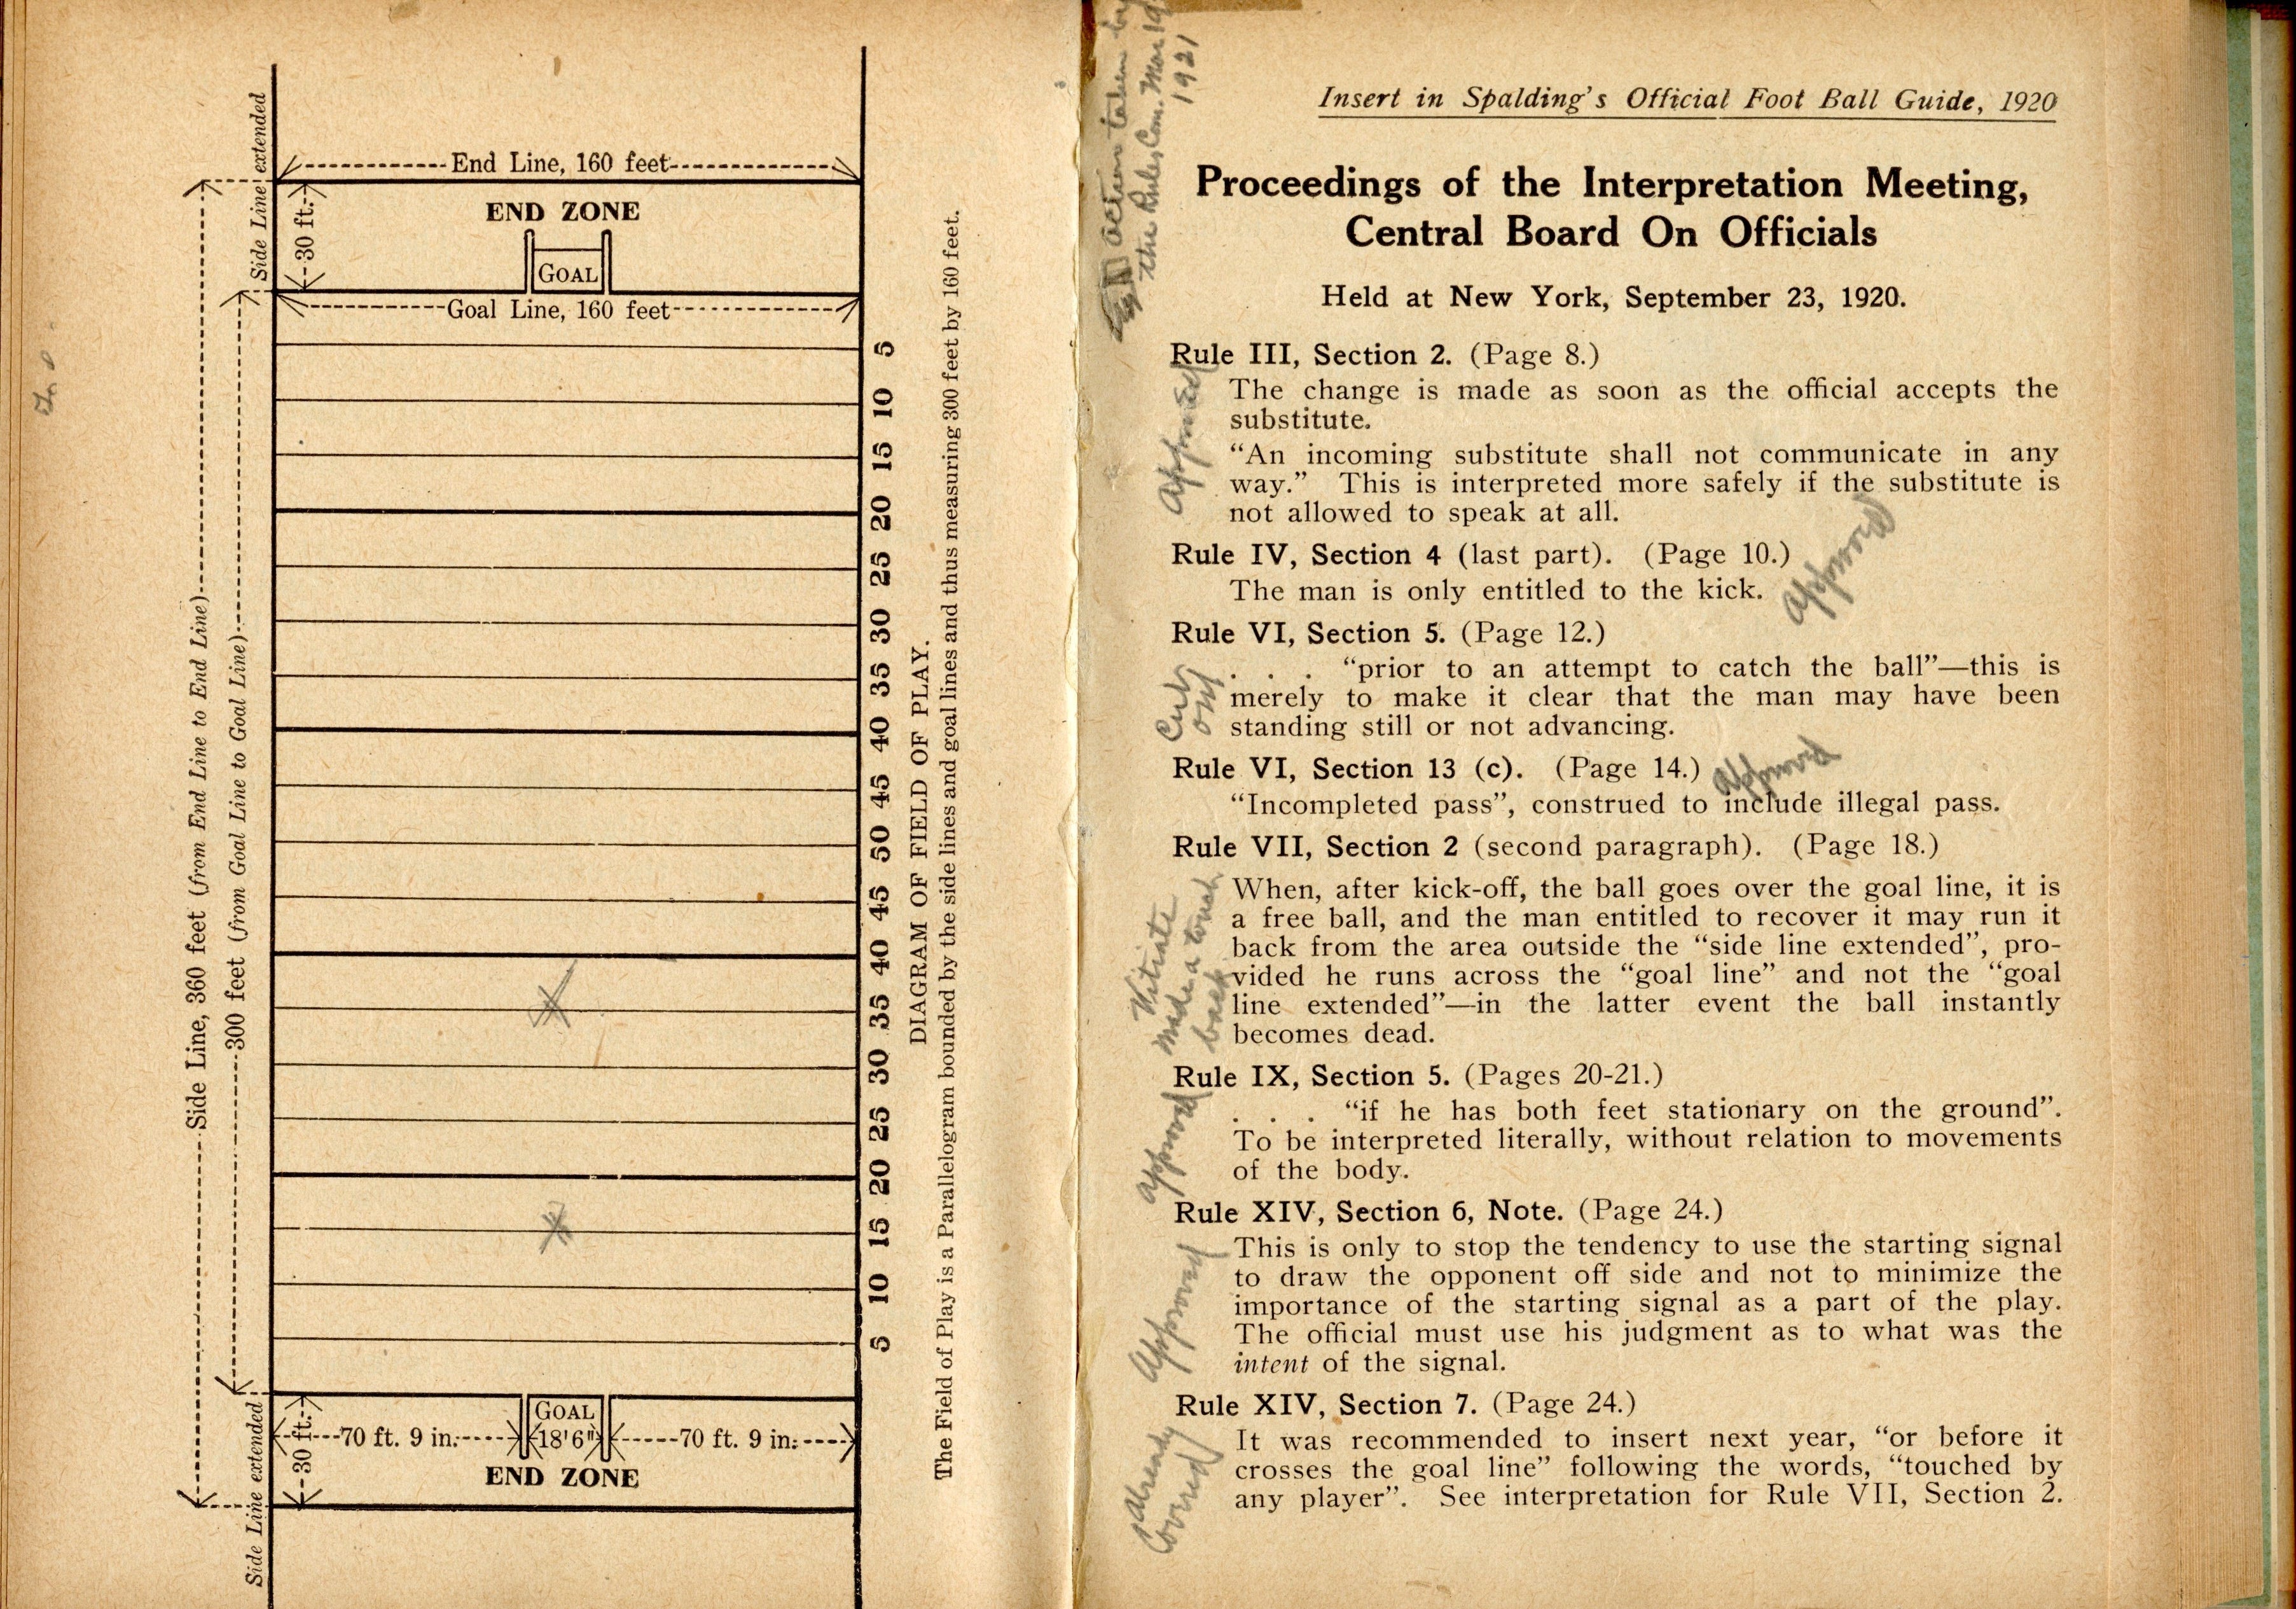 Side Line extended
End Line, 160 feet
30 ft.
END ZONE
GOAL
Goal Line, 160 feet
5
10
15
20
25
30
35
40
45
50
45
40
35
30
25
20
15
10
5
Side Line, 360 feet (from End Line to End Line)
300 feet (from Goal Line to Goal Line)
GOAL
70 ft. 9 in.
18'6"
70 ft. 9 in.
30 ft.
END ZONE
Side Line extended
DIAGRAM OF FIELD OF PLAY.
The Field of Play is a Parallelogram bounded by the side lines and goal lines and thus measuring 300 feet by 160 feet.
action taken by
the Rules Com. Mar 19
1921
Insert in Spalding's Official Foot Ball Guide, 1920
Proceedings of the Interpretation Meeting,
Central Board On Officials
Held at New York, September 23, 1920.
Rule III, Section 2. (Page 8.)
Approved
The change is made as soon as the official accepts the
substitute.
“An incoming substitute shall not communicate in any
way.” This is interpreted more safely if the substitute is
not allowed to speak at all.
Rule IV, Section 4 (last part). (Page 10.)
Approved
The man is only entitled to the kick.
Rule VI, Section 5. (Page 12.)
Cut
out
. . . “prior to an attempt to catch the ball”—this is
merely to make it clear that the man may have been
standing still or not advancing.
Rule VI, Section 13 (c). (Page 14.)
Approved
“Incompleted pass”, construed to include illegal pass.
Rule VII, Section 2 (second paragraph). (Page 18.)
Vitiate
made a touch
back
When, after kick-off, the ball goes over the goal line, it is
a free ball, and the man entitled to recover it may run it
back from the area outside the “side line extended”, pro-
vided he runs across the “goal line” and not the “goal
line extended”—in the latter event the ball instantly
becomes dead.
Rule IX, Section 5. (Pages 20-21.)
approved
. . . “if he has both feet stationary on the ground”.
To be interpreted literally, without relation to movements
of the body.
Rule XIV, Section 6, Note. (Page 24.)
Approved
This is only to stop the tendency to use the starting signal
to draw the opponent off side and not to minimize the
importance of the starting signal as a part of the play.
The official must use his judgment as to what was the
intent of the signal.
Rule XIV, Section 7. (Page 24.)
Already
Covered
It was recommended to insert next year, “or before it
crosses the goal line” following the words, “touched by
any player”. See interpretation for Rule VII, Section 2.